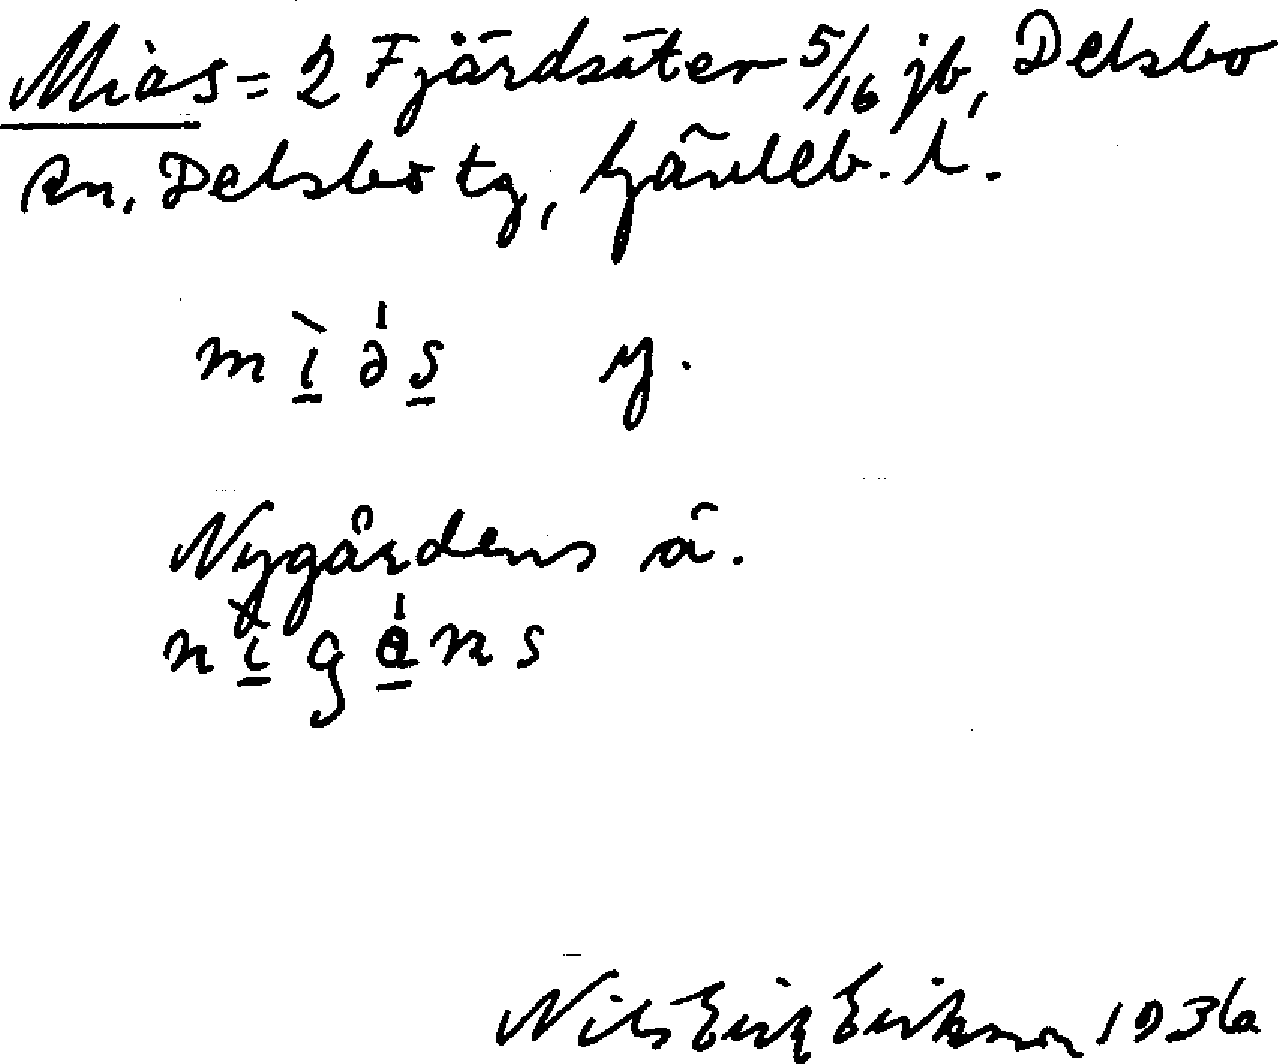 Mias = 2 Fjärdsäter 5/16 jb, Delsbo
sn, Delsbo tg, Gävleb. l.
mìɑs y.
Nygårdens ä.
nìgɑns
Nils Erik Erikson 1936